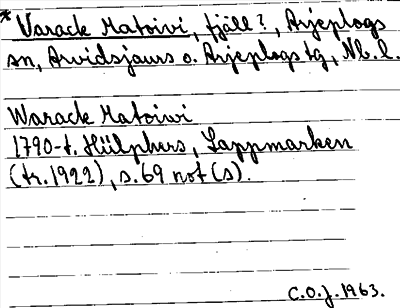 * Varack Matoivi, fjäll?, Arjeplogs
sn, Arvidsjaurs o. Arjeplogs tg, Nb. l.
Warack Matoiwi
1790-t. Hülphers, Lappmarken
(tr. 1922), s. 69 not (s).
C.O.J. 1963.